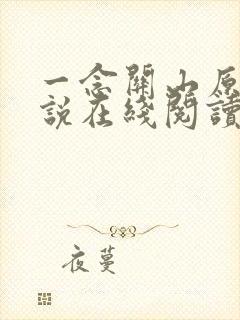 一念關山原
說在綫閱讀
夜蔓